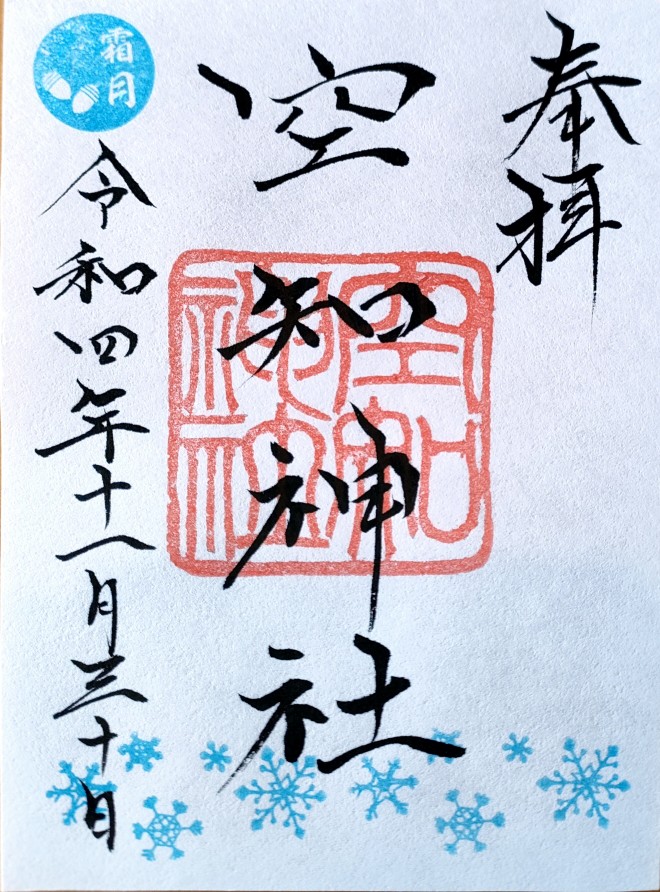 奉拝
空知神社
空知神社
霜月
令和四年十一月三十日